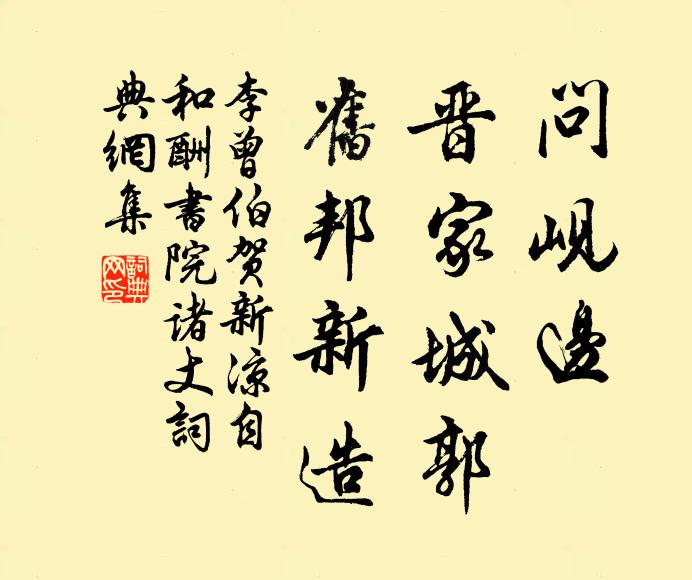 問峴邊
晋家城郭
舊邦新造
李曾伯贺新凉自
和酬書院诸丈詞
典網集
詞典
网印